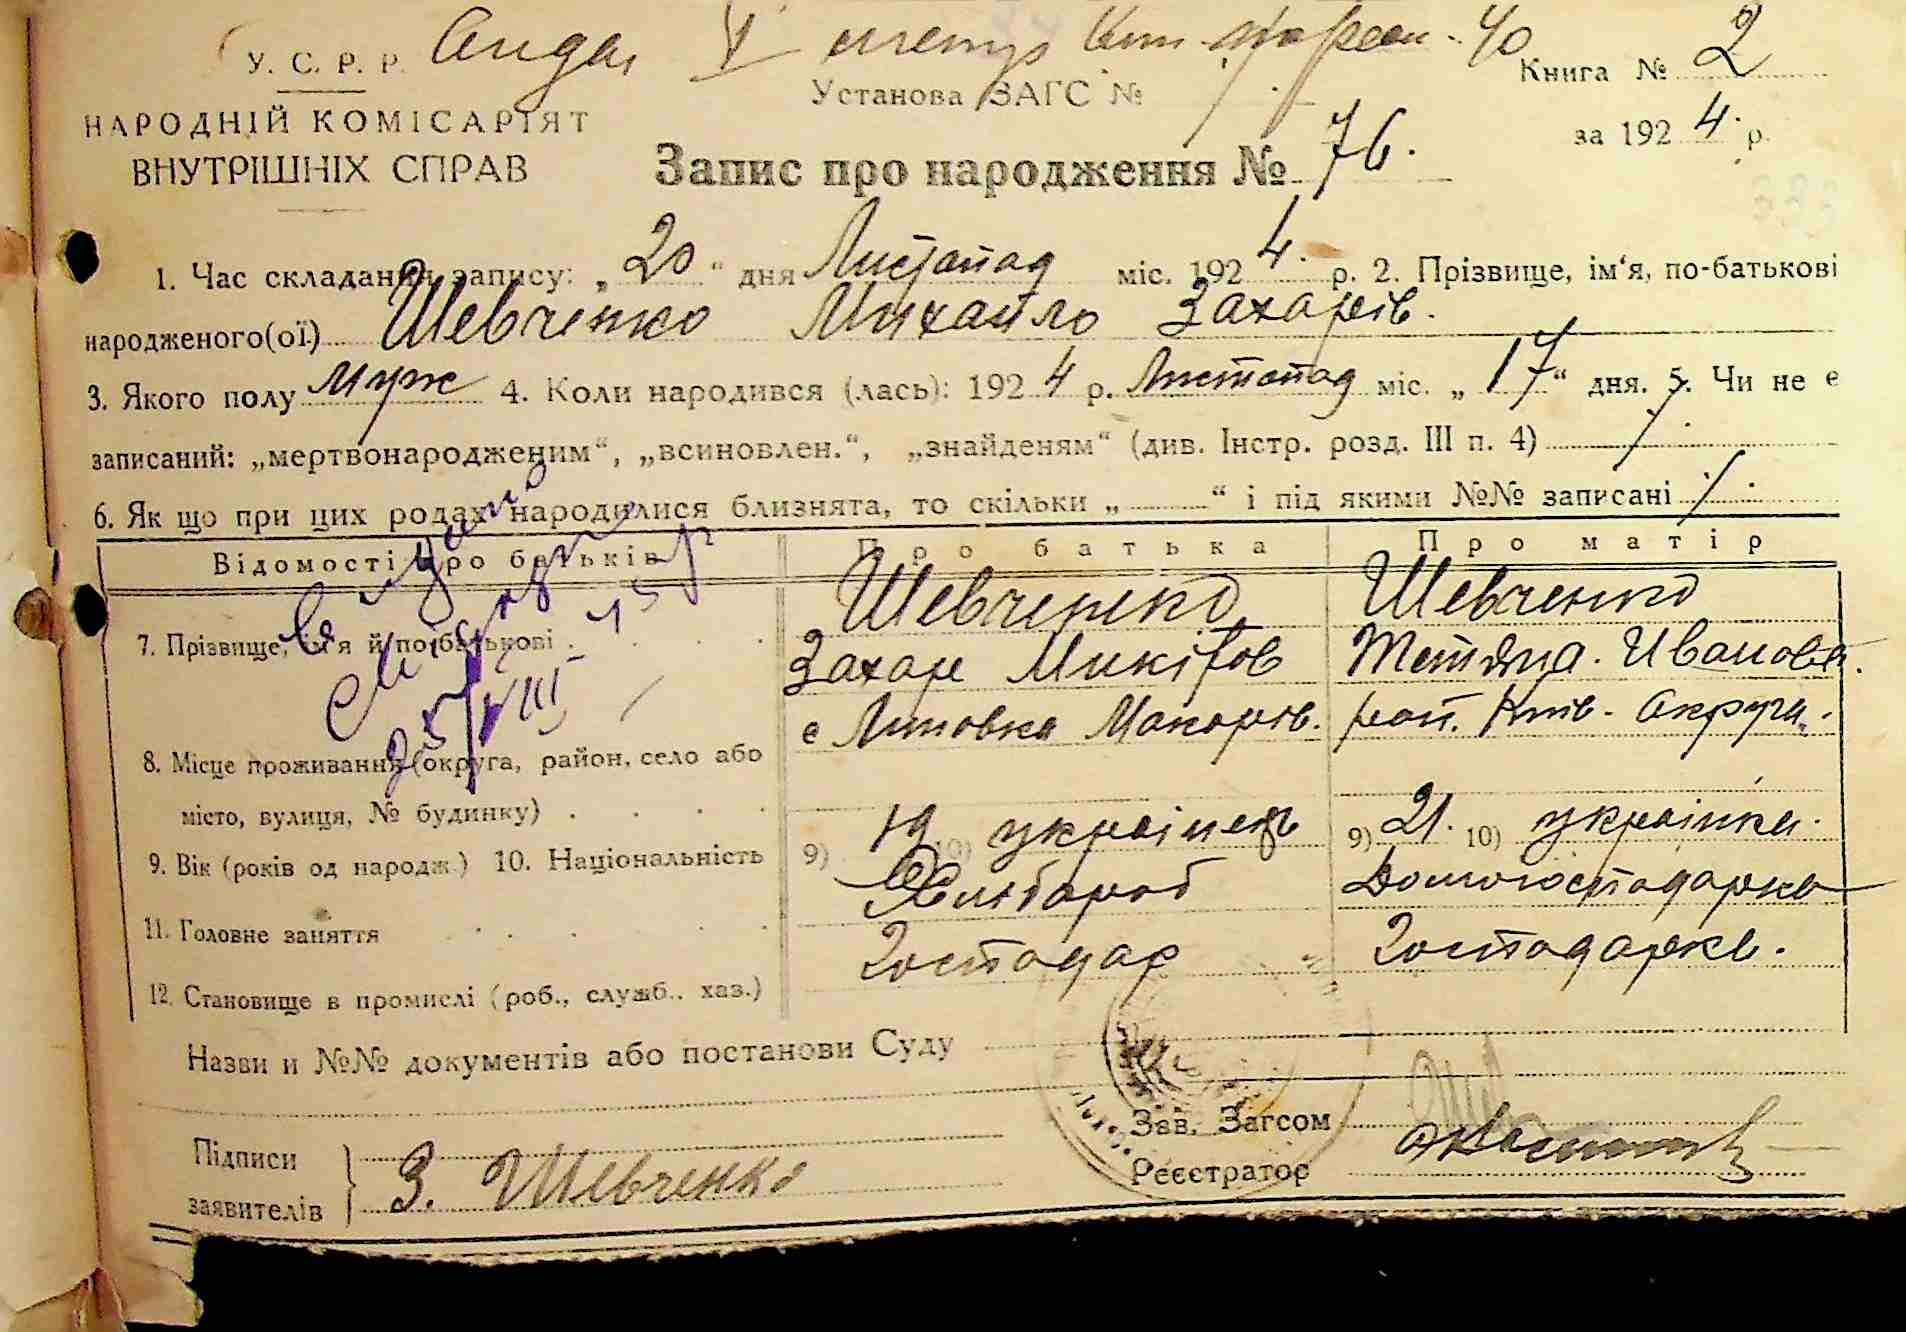 У. С. Р. Р.
НАРОДНІЙ КОМІСАРІЯТ
ВНУТРІШНІХ СПРАВ
Установа ЗАГС №
Книга № 2
за 1924 р.
Запис про народження № 76.
1. Час складання запису: „20“ дня Листопад міс. 1924 р. 2. Прізвище, ім‘я, по-батькові
народженого(ої) Шевченко Михайло Захарів.
3. Якого полу муж 4. Коли народився (лась): 1924 р. Листопад міс. „17“ дня. 5. Чи не є
записаний: „мертвонародженим“, „всиновлен.“, „знайденям“ (див. Інстр. розд. III п. 4)
6. Як що при цих родах народилися близнята, то скільки „ “ і під якими №№ записані
Відомості про батьків Про батька Про матір
7. Прізвище, ім‘я й по батькові Шевченко Шевченко
Захар Микітов Тетяна Иванова.
8. Місце проживання (округа, район, село або с Липовка Макарів. рай. Київ. Округи.
місто, вулиця, № будинку)
9. Вік (років од народж.) 10. Національність 9) 19 10) українець 9) 21. 10) українка.
11. Головне заняття Хлібороб Домогосподарка
12. Становище в промислі (роб., служб., хаз.) Господар Господарка.
25/VIII
Назви и №№ документів або постанови Суду
Зав. Загсом
Реєстратор
Підписи
заявителів
З. Шевченко